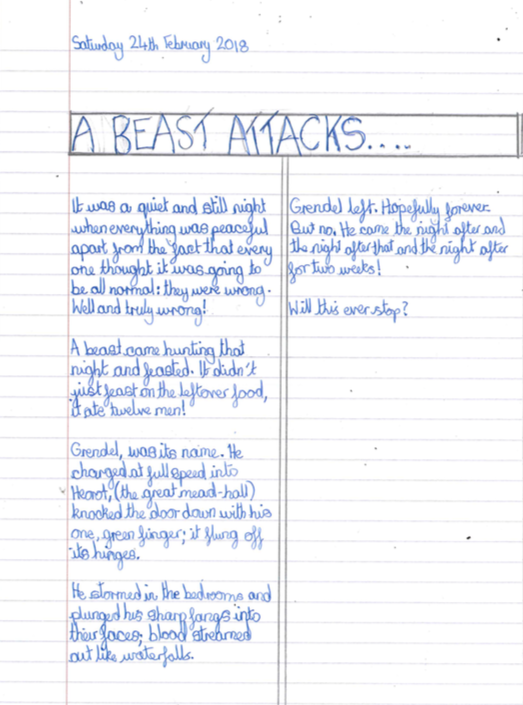 Saturday 24th February 2018
A BEAST ATTACKS....
It was a quiet and still night
when everything was peaceful
apart from the fact that every
one thought it was going to
be all normal: they were wrong.
Well and truly wrong!
A beast came hunting that
night and feasted. It didn't
just feast on the leftover food,
it ate twelve men!
Grendel, was its name. He
charged at full speed into
Heorot, (the great mead-hall)
knocked the door down with his
one, green finger; it flung off
its hinges.
He stormed in the bedrooms and
plunged his sharp fangs into
their faces; blood streamed
out like waterfalls.
Grendel left. Hopefully forever.
But no. He came the night after and
the night after that and the night after
for two weeks!
Will this ever stop?